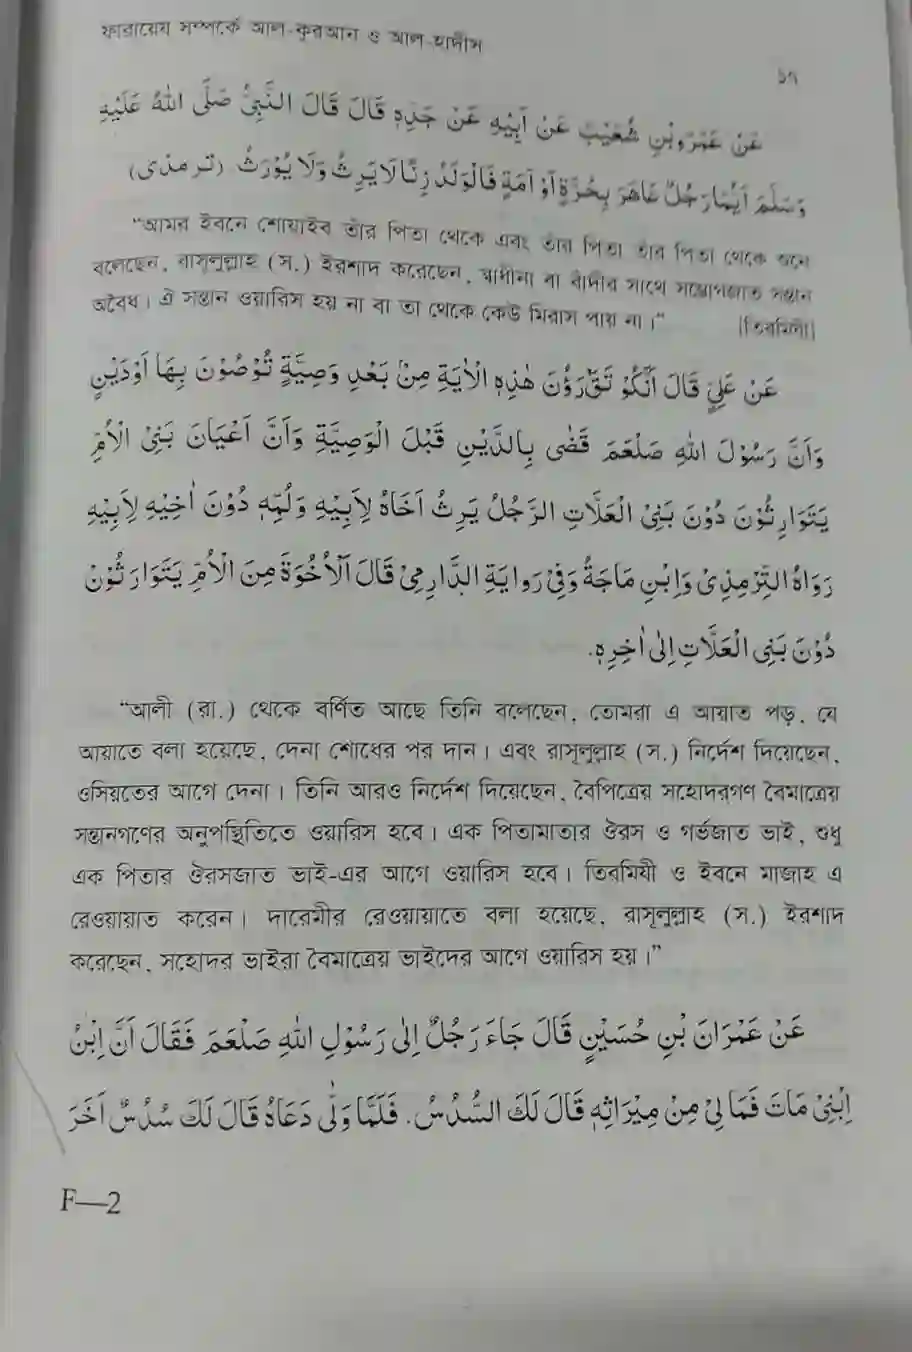 ফারায়েয সম্পর্কে আল-কুরআন ও আল-হাদীস
১৭
عَنْ عَمْرِوبْنِ شُعَيْبٍ عَنْ اَبِيْهِ عَنْ جَدِّهٖ قَالَ قَالَ النَّبِىُّ صَلَّى اللهُ عَلَيْهِ
وَسَلَّمَ اَيُّمَارَجُلٌ عَاهَرَ بِحُرَّةٍ اَوْ اَمَةٍ فَالْوَلَدُ زِنًا لَا يَرِثُ وَلَا يُوْرَثُ (ترمذى)
"আমর ইবনে শোয়াইব তাঁর পিতা থেকে এবং তাঁর পিতা তাঁর পিতা থেকে শুনে
বলেছেন, রাসূলুল্লাহ (স.) ইরশাদ করেছেন, স্বাধীনা বা বাঁদীর সাথে সম্ভোগজাত সন্তান
অবৈধ। ঐ সন্তান ওয়ারিস হয় না বা তা থেকে কেউ মিরাস পায় না।" [তিরমিযী]
عَنْ عَلِىٍّ قَالَ اَنَّكُمْ تَقْرَؤُنَ هٰذِهِ الْاٰيَةِ مِنْ بَعْدِ وَصِيَّةٍ تُوْصُوْنَ بِهَا اَوْدَيْنٍ
وَاَنَّ رَسُوْلَ اللهِ صَلْعَمَ قَضٰى بِالدَّيْنِ قَبْلَ الْوَصِيَّةِ وَاَنَّ اَعْيَانَ بَنِىْ الْاُمِّ
يَتَوَارِثُوْنَ دُوْنَ بَنِىْ الْعَلَّاتِ الرَّجُلُ يَرِثُ اَخَاهُ لِاَبِيْهِ وَلُمِّهٖ دُوْنَ اَخِيْهِ لِاَبِيْهِ
رَوَاهُ التِّرْمِذِىْ وَاِبْنِ مَاجَةُ وَفِىْ رِوَايَةِ الدَّارِمِىْ قَالَ اَلْاُخُوَةَ مِنَ الْاُمِّ يَتَوَارَثُوْنَ
دُوْنَ بَنِى الْعَلَّاتِ اِلٰى اٰخِرِهٖ.
"আলী (রা.) থেকে বর্ণিত আছে তিনি বলেছেন, তোমরা এ আয়াত পড়, যে
আয়াতে বলা হয়েছে, দেনা শোধের পর দান। এবং রাসূলুল্লাহ (স.) নির্দেশ দিয়েছেন,
ওসিয়তের আগে দেনা। তিনি আরও নির্দেশ দিয়েছেন, বৈপিত্রেয় সহোদরগণ বৈমাত্রেয়
সন্তানগণের অনুপস্থিতিতে ওয়ারিস হবে। এক পিতামাতার ঔরস ও গর্ভজাত ভাই, শুধু
এক পিতার ঔরসজাত ভাই-এর আগে ওয়ারিস হবে। তিরমিযী ও ইবনে মাজাহ এ
রেওয়ায়াত করেন। দারেমীর রেওয়ায়াতে বলা হয়েছে, রাসূলুল্লাহ (স.) ইরশাদ
করেছেন, সহোদর ভাইরা বৈমাত্রেয় ভাইদের আগে ওয়ারিস হয়।"
عَنْ عَمْرَانَ بْنِ حُسَيْنٍ قَالَ جَاءَ رَجُلٌ اِلٰى رَسُوْلِ اللهِ صَلْعَمَ فَقَالَ اَنَّ اِبْنُ
اِبْنِىْ مَاتَ فَمَا لِىْ مِنْ مِيْرَاثِهٖ قَالَ لَكَ السُّدُسُ. فَلَمَّا وَلّٰى دَعَاهُ قَالَ لَكَ سُدُسٌ اٰخَرَ
F—2